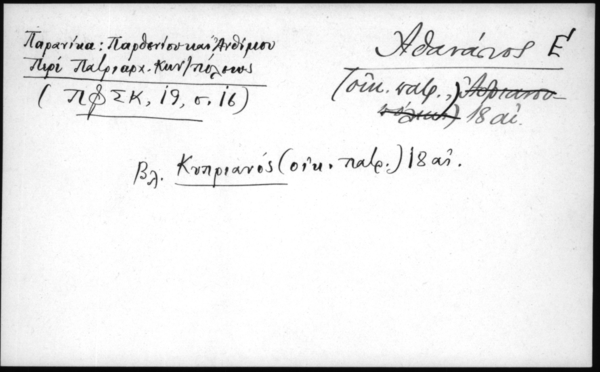 Παρανίκα: Παρθενίου και Ἀνθίμου
Περί Πατριαρχ. Κων/πόλεως
(ΠΦΣΚ, 19, σ. 16)
Ἀθανάσιος Ε΄
(οἰκ. πατρ.,)
18 αἰ.
Βλ. Κυπριανός (οἰκ. πατρ.) 18 αἰ.